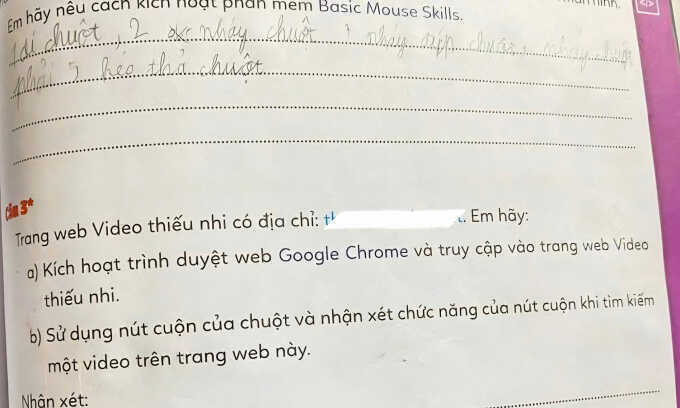 Em hãy nêu cách kích hoạt phần mềm Basic Mouse Skills.
chuột, 2 nháy chuột, nháy chuột
phải 5 kéo thả chuột
Câu 3*
Trang web Video thiếu nhi có địa chỉ: Em hãy:
a) Kích hoạt trình duyệt web Google Chrome và truy cập vào trang web Video
thiếu nhi.
b) Sử dụng nút cuộn của chuột và nhận xét chức năng của nút cuộn khi tìm kiếm
một video trên trang web này.
Nhận xét: